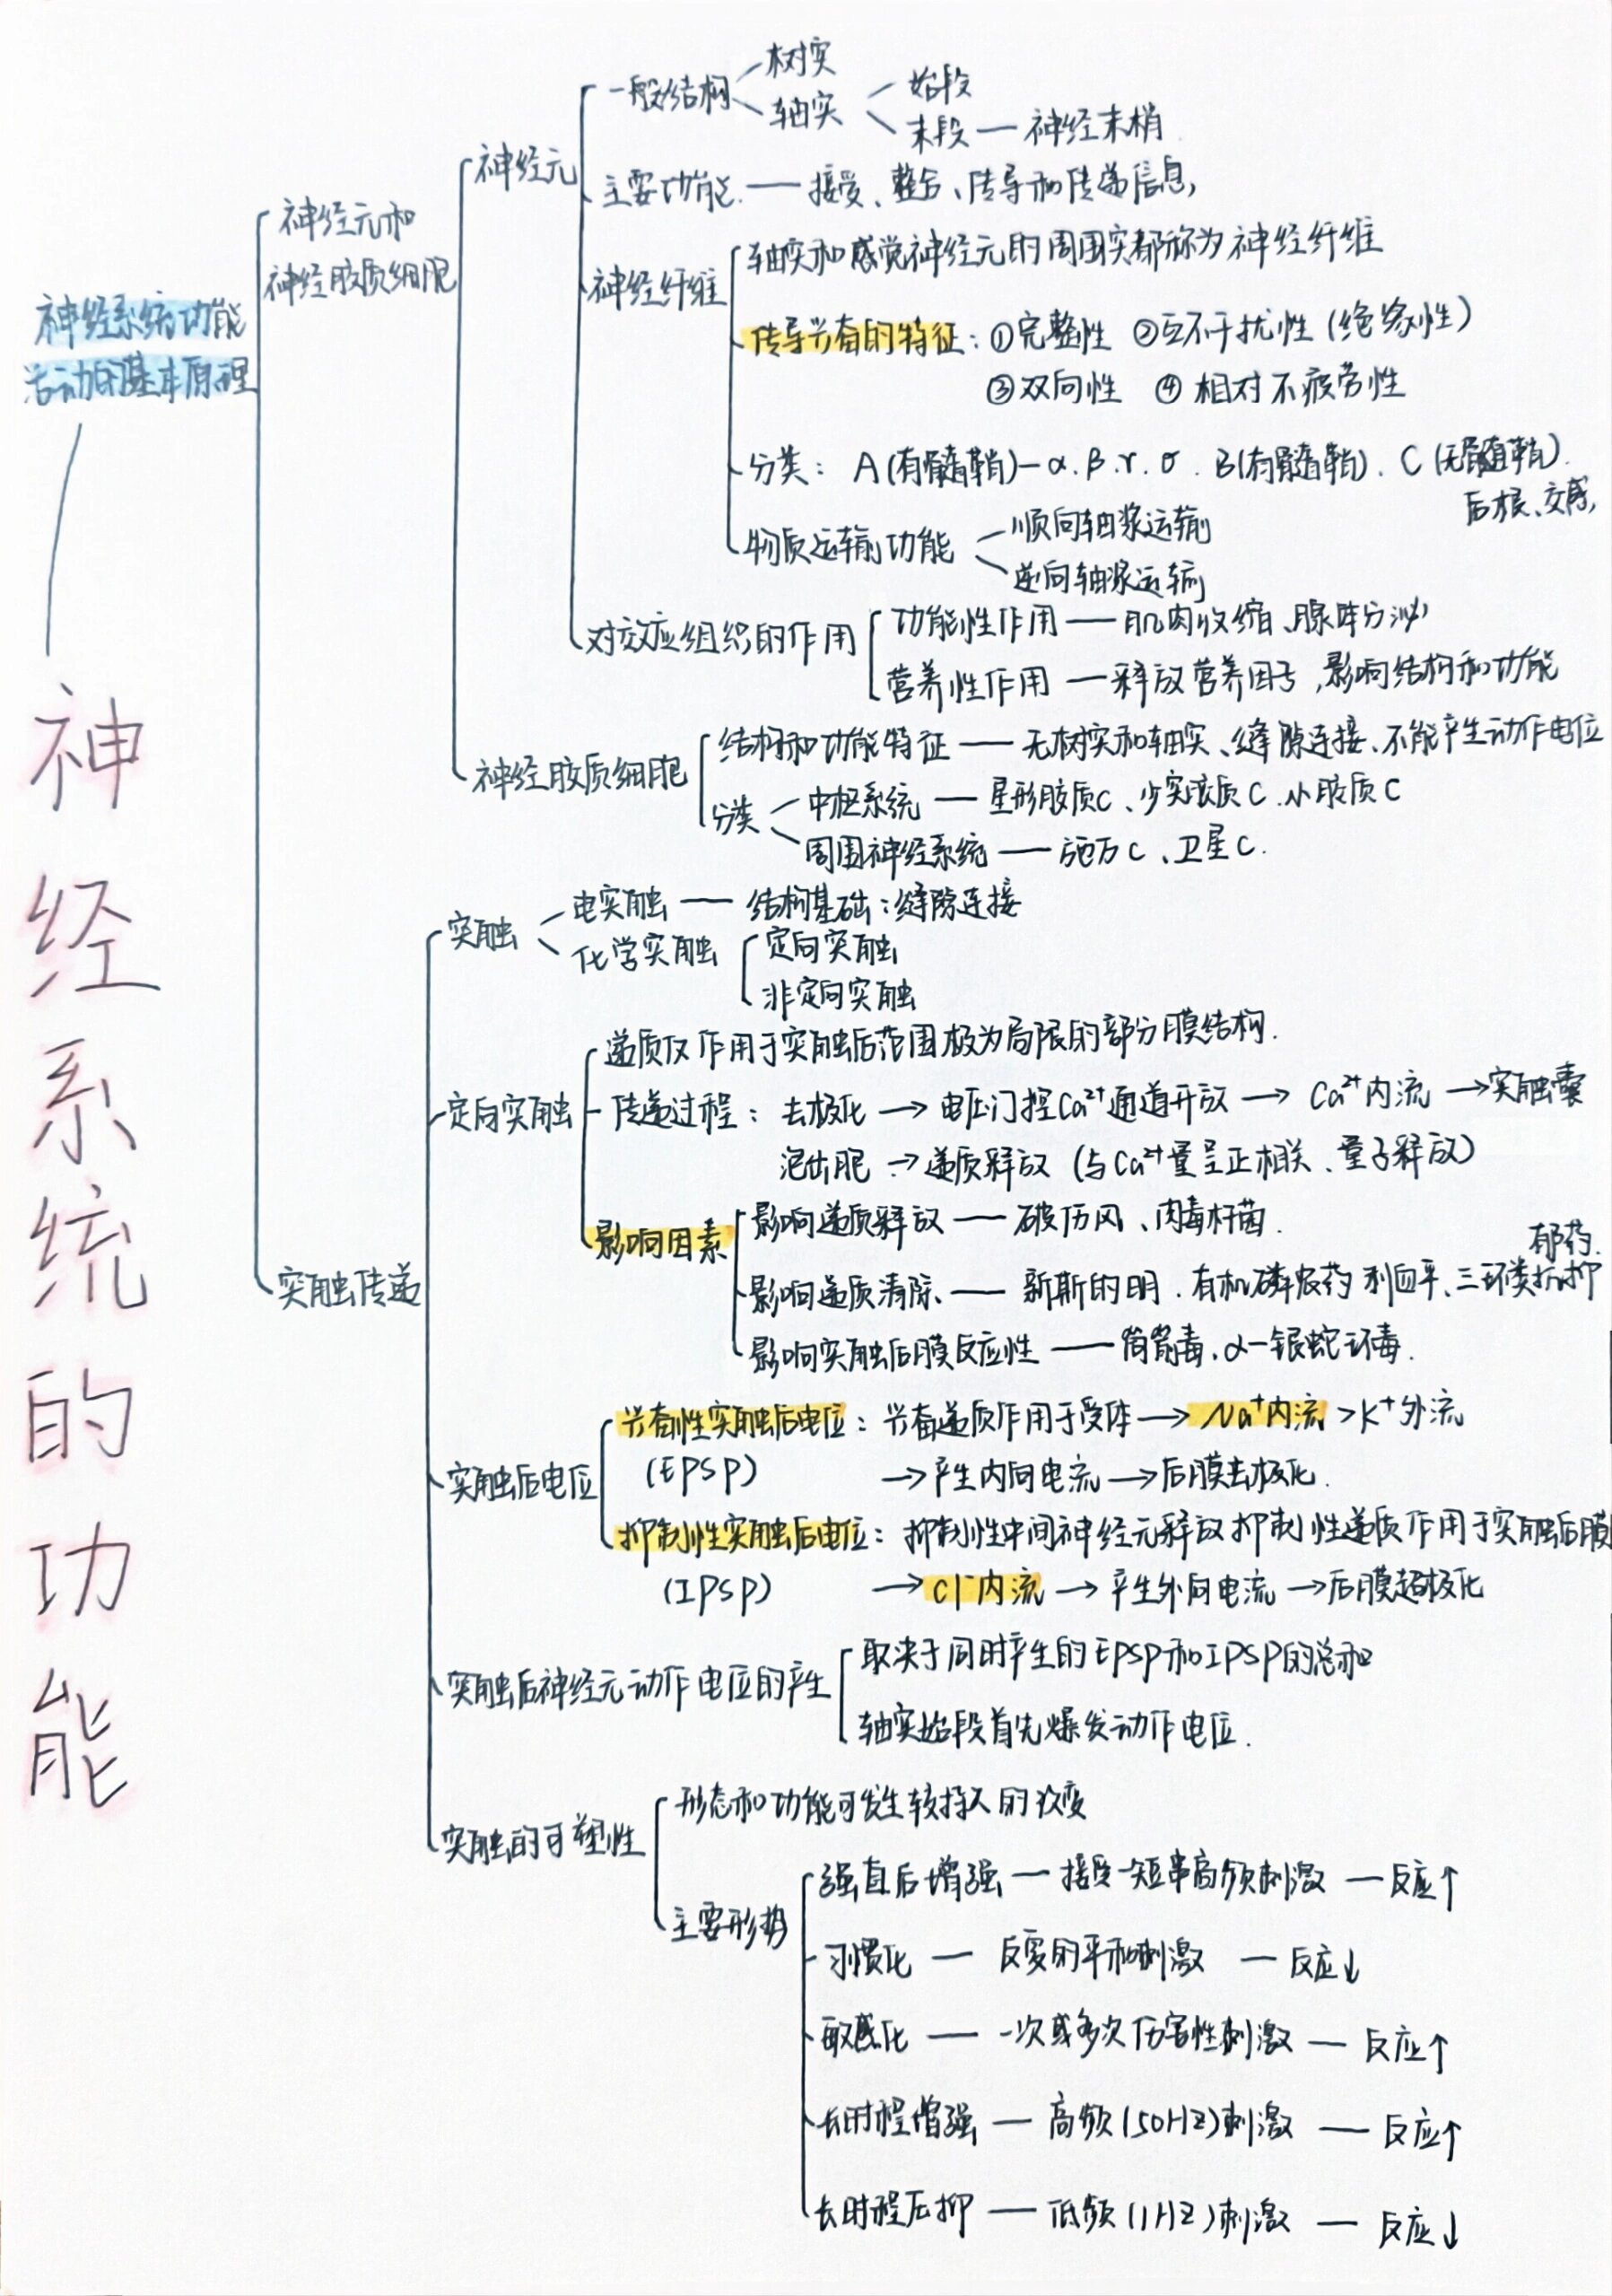 神经系统的功能
神经系统功能
活动的基本原理
神经元和
神经胶质细胞
神经元
一般结构
树突
轴突
始段
末段 — 神经末梢
主要功能 — 接受、整合、传导和传递信息,
神经纤维
轴突和感觉神经元的周围突都称为神经纤维
传导兴奋的特征:①完整性 ②互不干扰性(绝缘性)
③双向性 ④相对不疲劳性
分类: A(有髓鞘)—α.β.γ.σ. B(有髓鞘). C(无髓鞘).
后根、交感,
物质运输功能
顺向轴浆运输
逆向轴浆运输
对效应组织的作用
功能性作用 — 肌肉收缩、腺体分泌
营养性作用 — 释放营养因子,影响结构和功能
神经胶质细胞
结构和功能特征 — 无树突和轴突、缝隙连接、不能产生动作电位
分类
中枢系统 — 星形胶质C、少突胶质C.小胶质C
周围神经系统 — 施万C、卫星C.
突触传递
突触
电突触 — 结构基础:缝隙连接
化学突触
定向突触
非定向突触
定向突触
递质仅作用于突触后范围极为局限的部分膜结构.
传递过程: 去极化 → 电压门控Ca²⁺通道开放 → Ca²⁺内流 → 突触囊
泡出胞 → 递质释放 (与Ca²⁺量呈正相关、量子释放)
影响因素
影响递质释放 — 破伤风、肉毒杆菌.
郁药.
影响递质清除、— 新斯的明.有机磷农药 利血平、三环类抗抑
影响突触后膜反应性 — 筒箭毒.α-银蛇环毒.
突触后电位
兴奋性突触后电位: 兴奋递质作用于受体 → Na⁺内流 > K⁺外流
(EPSP) → 产生内向电流 → 后膜去极化.
抑制性突触后电位: 抑制性中间神经元释放抑制性递质作用于突触后膜
(IPSP) → Cl⁻内流 → 产生外向电流 → 后膜超极化
突触后神经元动作电位的产生
取决于同时产生的EPSP和IPSP的总和
轴突始段首先爆发动作电位.
突触的可塑性
形态和功能可发生较持久的改变
主要形势
强直后增强 — 接受一短串高频刺激 — 反应↑
习惯化 — 反复的平和刺激 — 反应↓
敏感化 — 一次或多次伤害性刺激 — 反应↑
长时程增强 — 高频(50HZ)刺激 — 反应↑
长时程压抑 — 低频(1HZ)刺激 — 反应↓